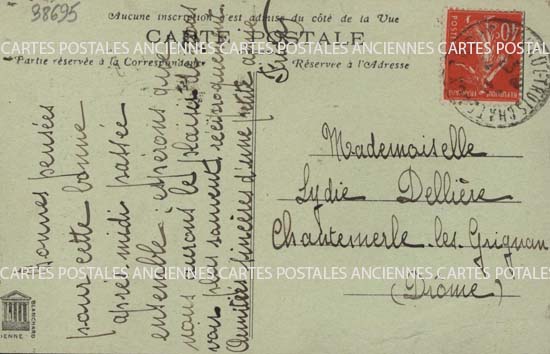 98695
Aucune inscription n'est admise du côté de la Vue
CARTE POSTALE
Partie réservée à la Correspondance
Réservée à l'Adresse
CARTES POSTALES ANCIENNES CARTES POSTALES ANCIENNES CARTES POSTALES
Bonnes pensées
pour cette bonne
après midi passée
ensemble; espérons que
nous aurons le plaisir de
voir plus souvent, réciproquement
Amitiés sincères d'une petite amie
Mademoiselle
Lydie Dellière
Chantemerle-les-Grignan
(Drôme)
CARTES POSTALES ANCIENNES CARTES POSTALES ANCIENNES CARTES POSTALES
BLANCHARD